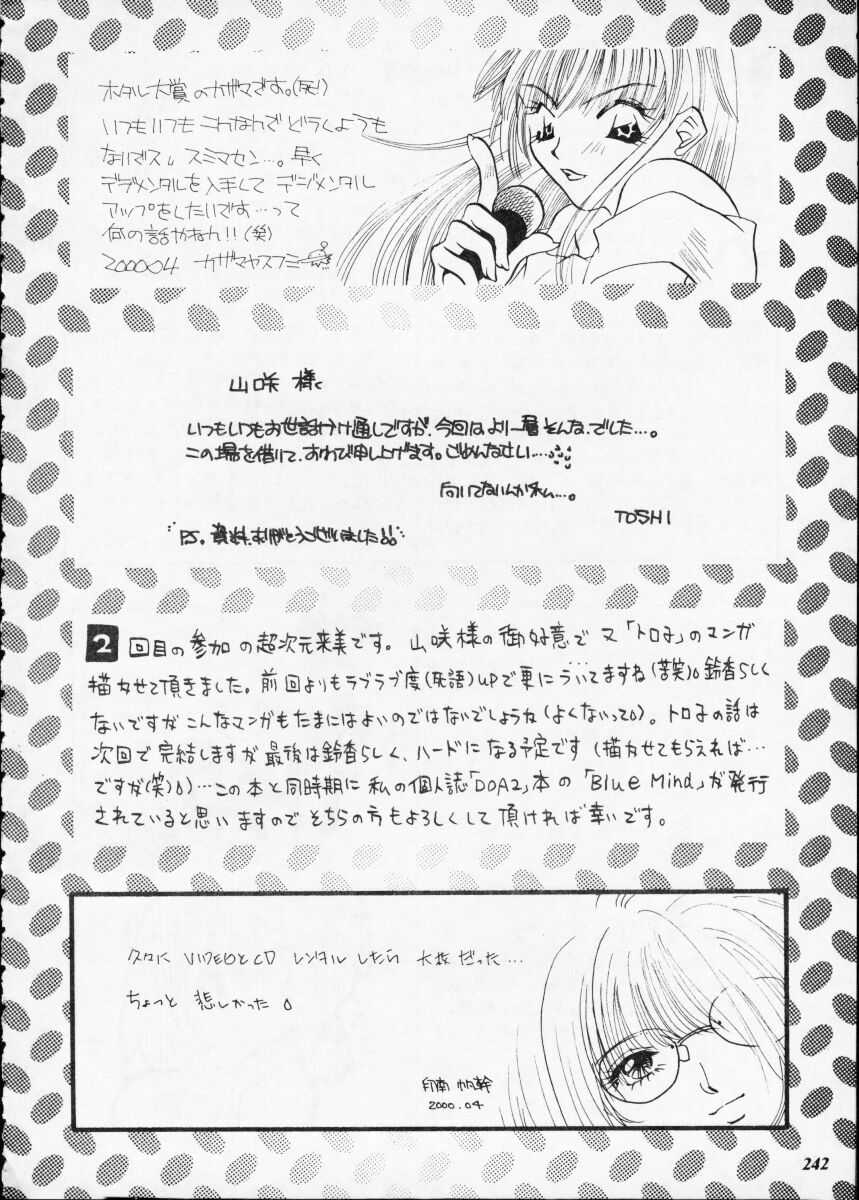 ホタル大賞のカザマです。(死)
いつもいつもこんなんで どうしようも
ないデス。スミマセン…。早く
デヂメンタルを入手して デジメンタル
アップをしたいです…って
何の話やねん!!(笑)
200004 カザマヤスフミ
山咲 様へ
いつもいつもお世話かけ通しですが、今回はより一層そんな、でした…。
この場を借りて、おわび申し上げます。ごめんなさい…
向いてないんかねぇ…。
TOSHI
PS. 資料、ありがとうございました!!
2回目の参加の超次元来美です。山咲様の御好意で又「トロ子」のマンガ
描かせて頂きました。前回よりもラブラブ度(死語)UPで更にういてますね(苦笑)。鈴香らしく
ないですがこんなマンガもたまにはよいのではないでしょうね(よくないって)。トロ子の話は
次回で完結しますが最後は鈴香らしく、ハードになる予定です(描かせてもらえれば…
ですが(笑))…この本と同時期に私の個人誌「DOA2」本の「Blue Mind」が発行
されていると思いますのでそちらの方もよろしくして頂ければ幸いです。
久々に VIDEOとCD レンタルしたら 大 だった…
ちょっと 悲しかった
印南 帆幹
2000.04
242